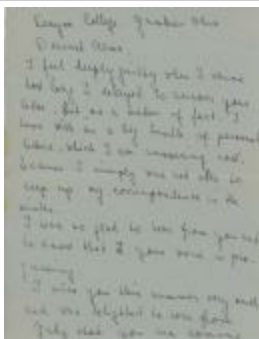 Kenyon College Gambier Ohio
Dearest
I feel deeply guilty when I
how long I delayed to answer your
letter. But as a matter of fact, I
have with me a big bundle of personal
letters, which I am answering now,
because I simply was not able to
keep up my correspondence in the
I was so glad to hear from you and
to know that your work is pro-
gressing.
I miss you this summer very much
and was delighted to hear from
July that you are coming